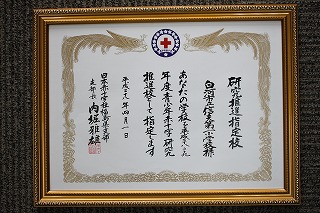 研究推進指定校
白河市立信夫第一小学校様
あなたの学校を平成二十八
年度青少年赤十字研究
推進校として指定します
平成二十八年四月一日
日本赤十字社福島県支部
支部長 内堀雅雄